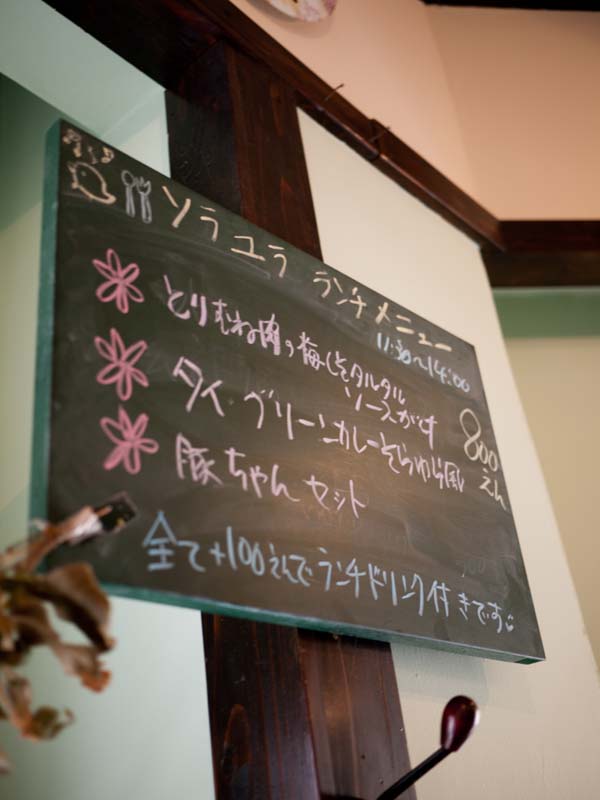 ソラユラ ランチメニュー
11:30〜14:00
とりむね肉の梅しそタルタル
ソースがけ
タイグリーンカレーそらゆら風
800
えん
豚ちゃんセット
全て+100えんでランチドリンク付きです